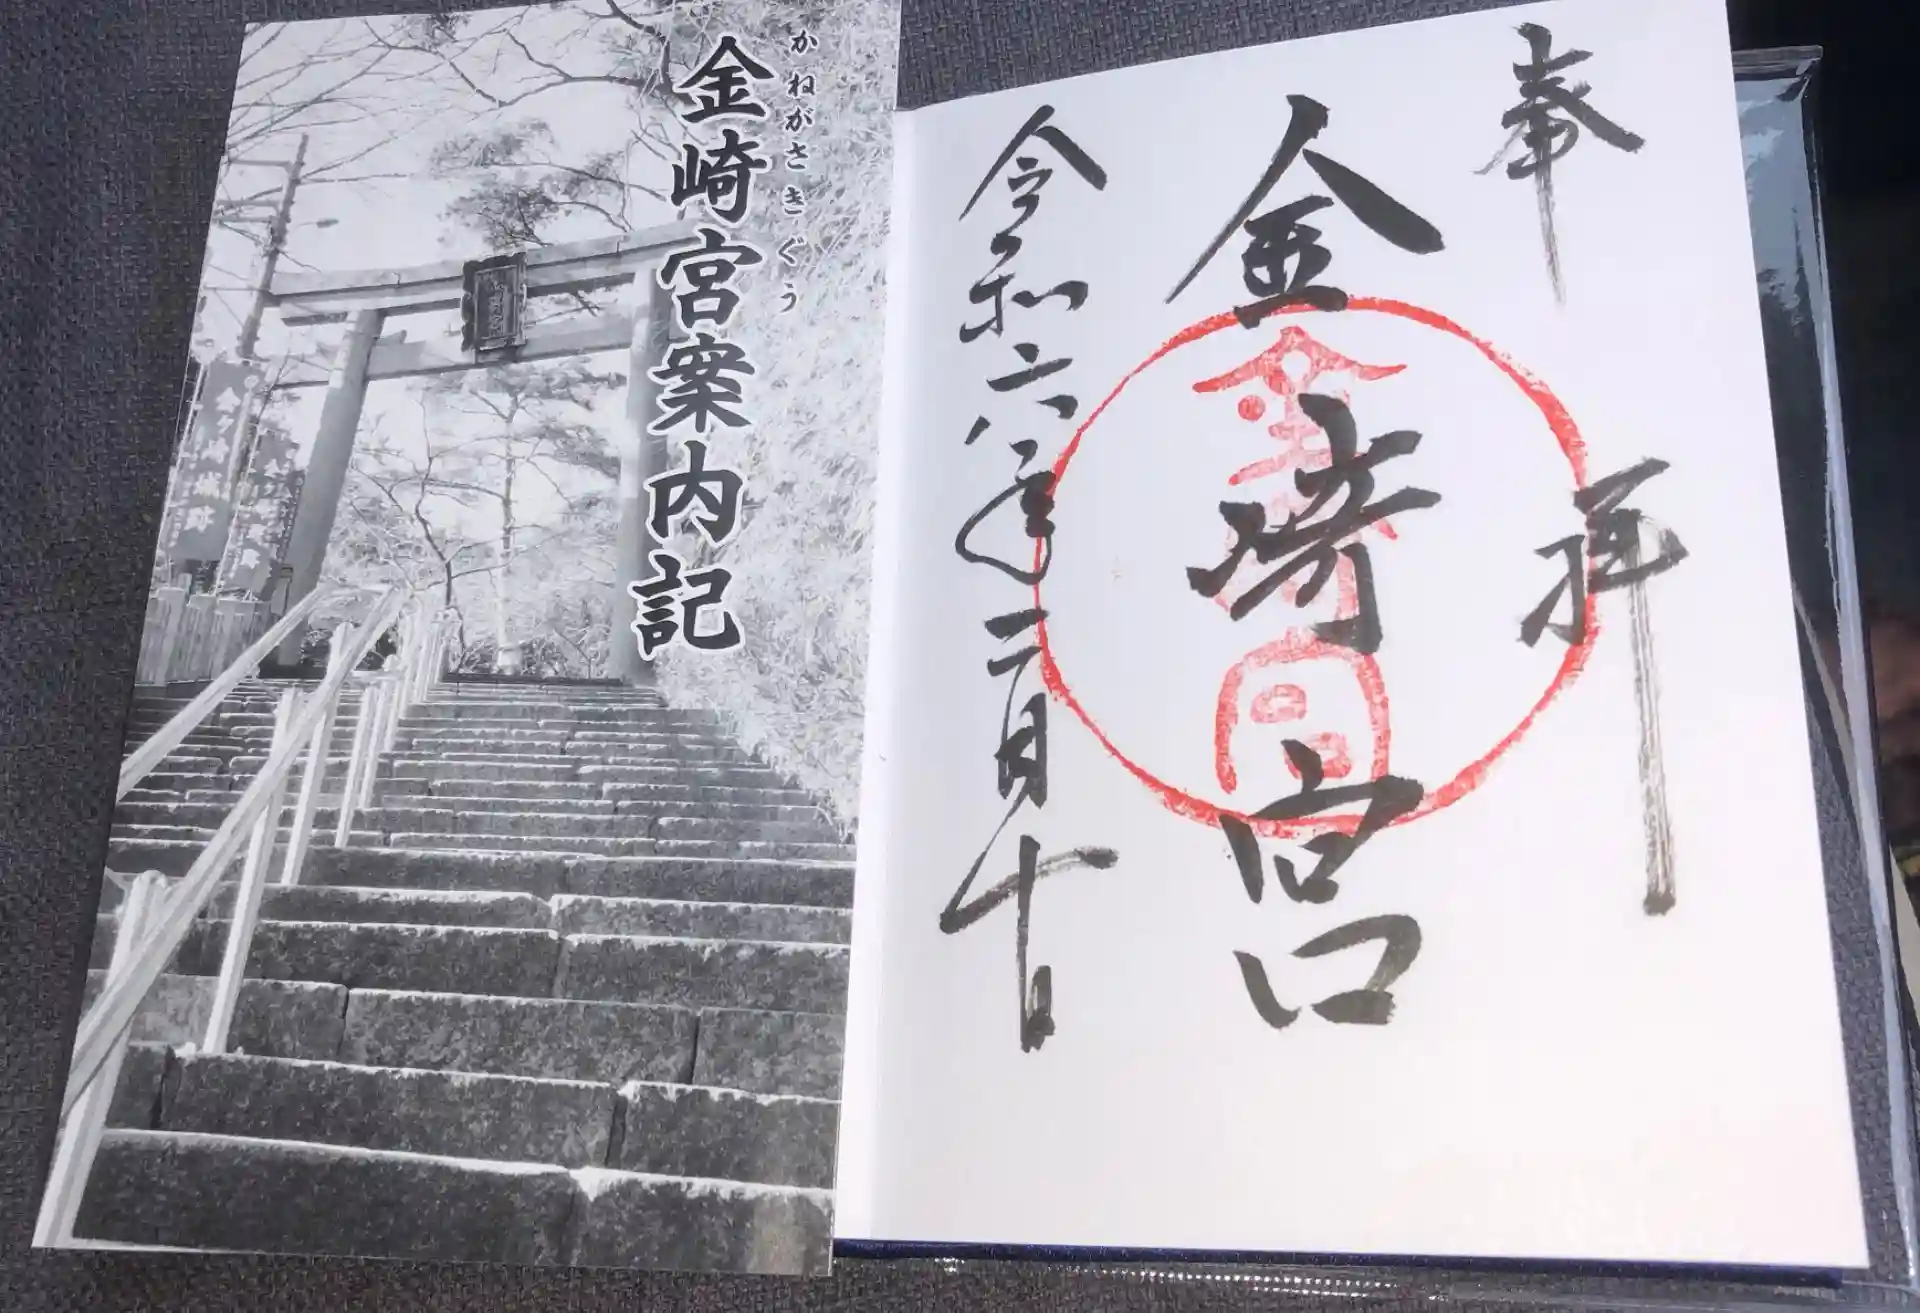 奉拝
金崎宮
金崎宮
令和六年二月十日
かねがさきぐう
金崎宮案内記